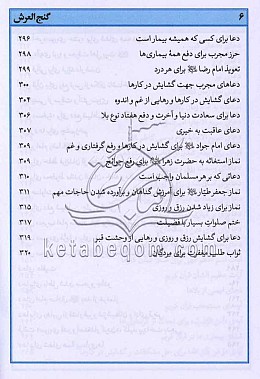 ۶ گنج العرش
دعا برای کسی که همیشه بیمار است ۲۹۶
حرز مجرب برای دفع همهٔ بیماری‌ها ۲۹۸
تعویذ امام رضا ﷺ برای هر درد ۲۹۹
دعاهای مجرب جهت گشایش در کارها ۳۰۰
دعای گشایش در کارها و رهایی از غم و اندوه ۳۰۲
دعا برای سعادت دنیا و آخرت و دفع هفتاد نوع بلا ۳۰۶
دعای عاقبت به خیری ۳۰۷
دعای امام جواد ﷺ برای گشایش در کارها و رفع گرفتاری و غم ۳۰۹
نماز استغاثه به حضرت زهرا ﷺ برای رفع حوائج ۳۰۹
دعائی که بر هر مسلمان واجب است ۳۱۰
نماز جعفر طیّار ﷺ برای آمرزش گناهان و برآورده شدن حاجات مهم ۳۱۱
نماز برای زیاد شدن رزق و روزی ۳۱۵
ختم صلوات بسیار با فضیلت ۳۱۷
دعا برای گشایش رزق و روزی و رهایی از وحشت قبر ۳۱۹
ثواب طلب مغفرت برای مردگان ۳۲۰
ketabeqom.com